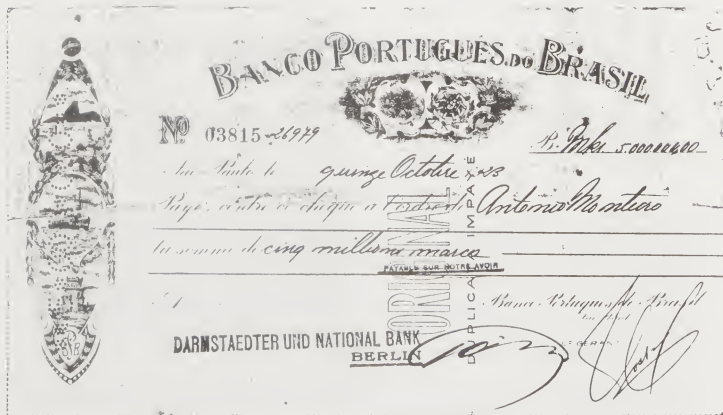 BANCO PORTUGUÊS DO BRASIL
Nº 03815-26979
Mks. 5.000.000,00
São Paulo le quinze Octobre 23
Payez contre ce chèque à l'ordre de Antonio Monteiro
la somme de cinq millions marcs
PAYABLE SUR NOTRE AVOIR
ORIGINAL
DUPLICATA IMPAYE
Banco Português do Brasil
DARMSTAEDTER UND NATIONAL BANK
BERLIN